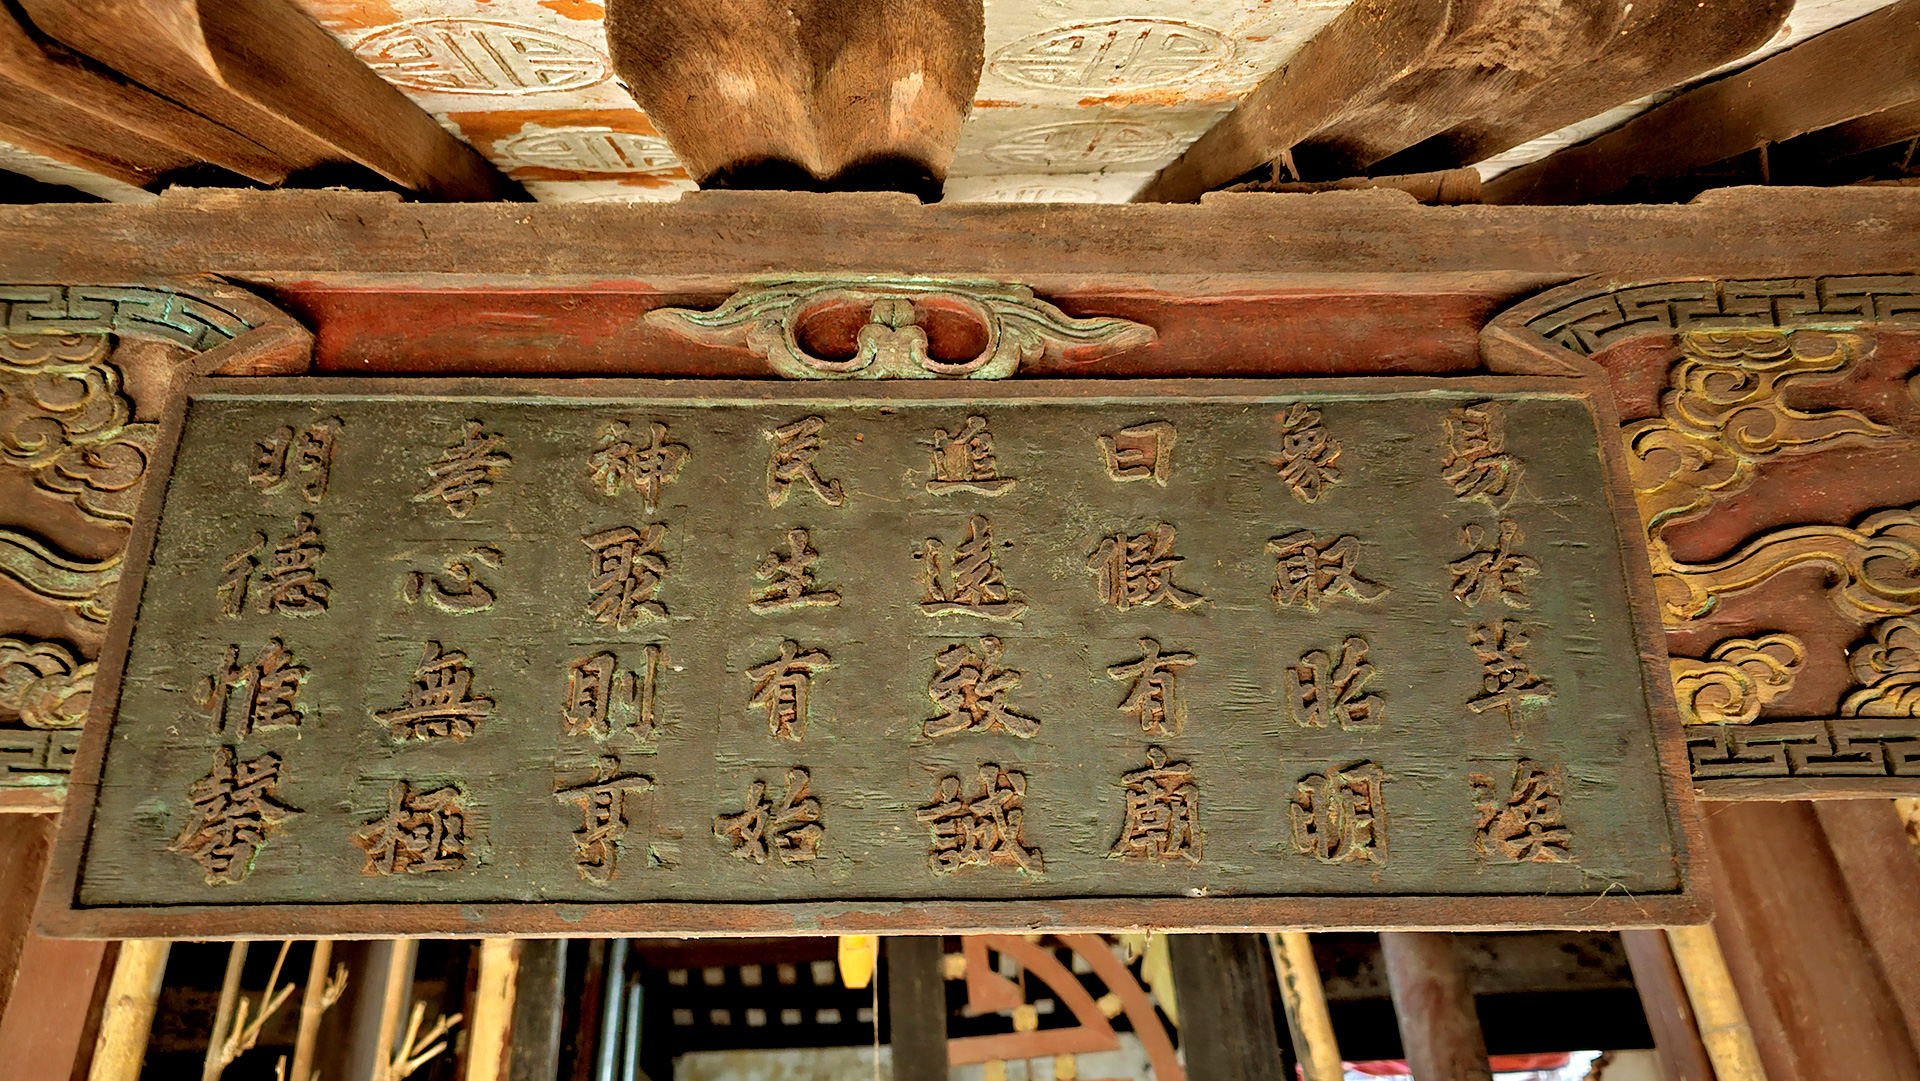 易於萃渙
象取昭明
曰假有廟
追遠致誠
民生有始
神聚則亨
孝心無極
明德惟馨